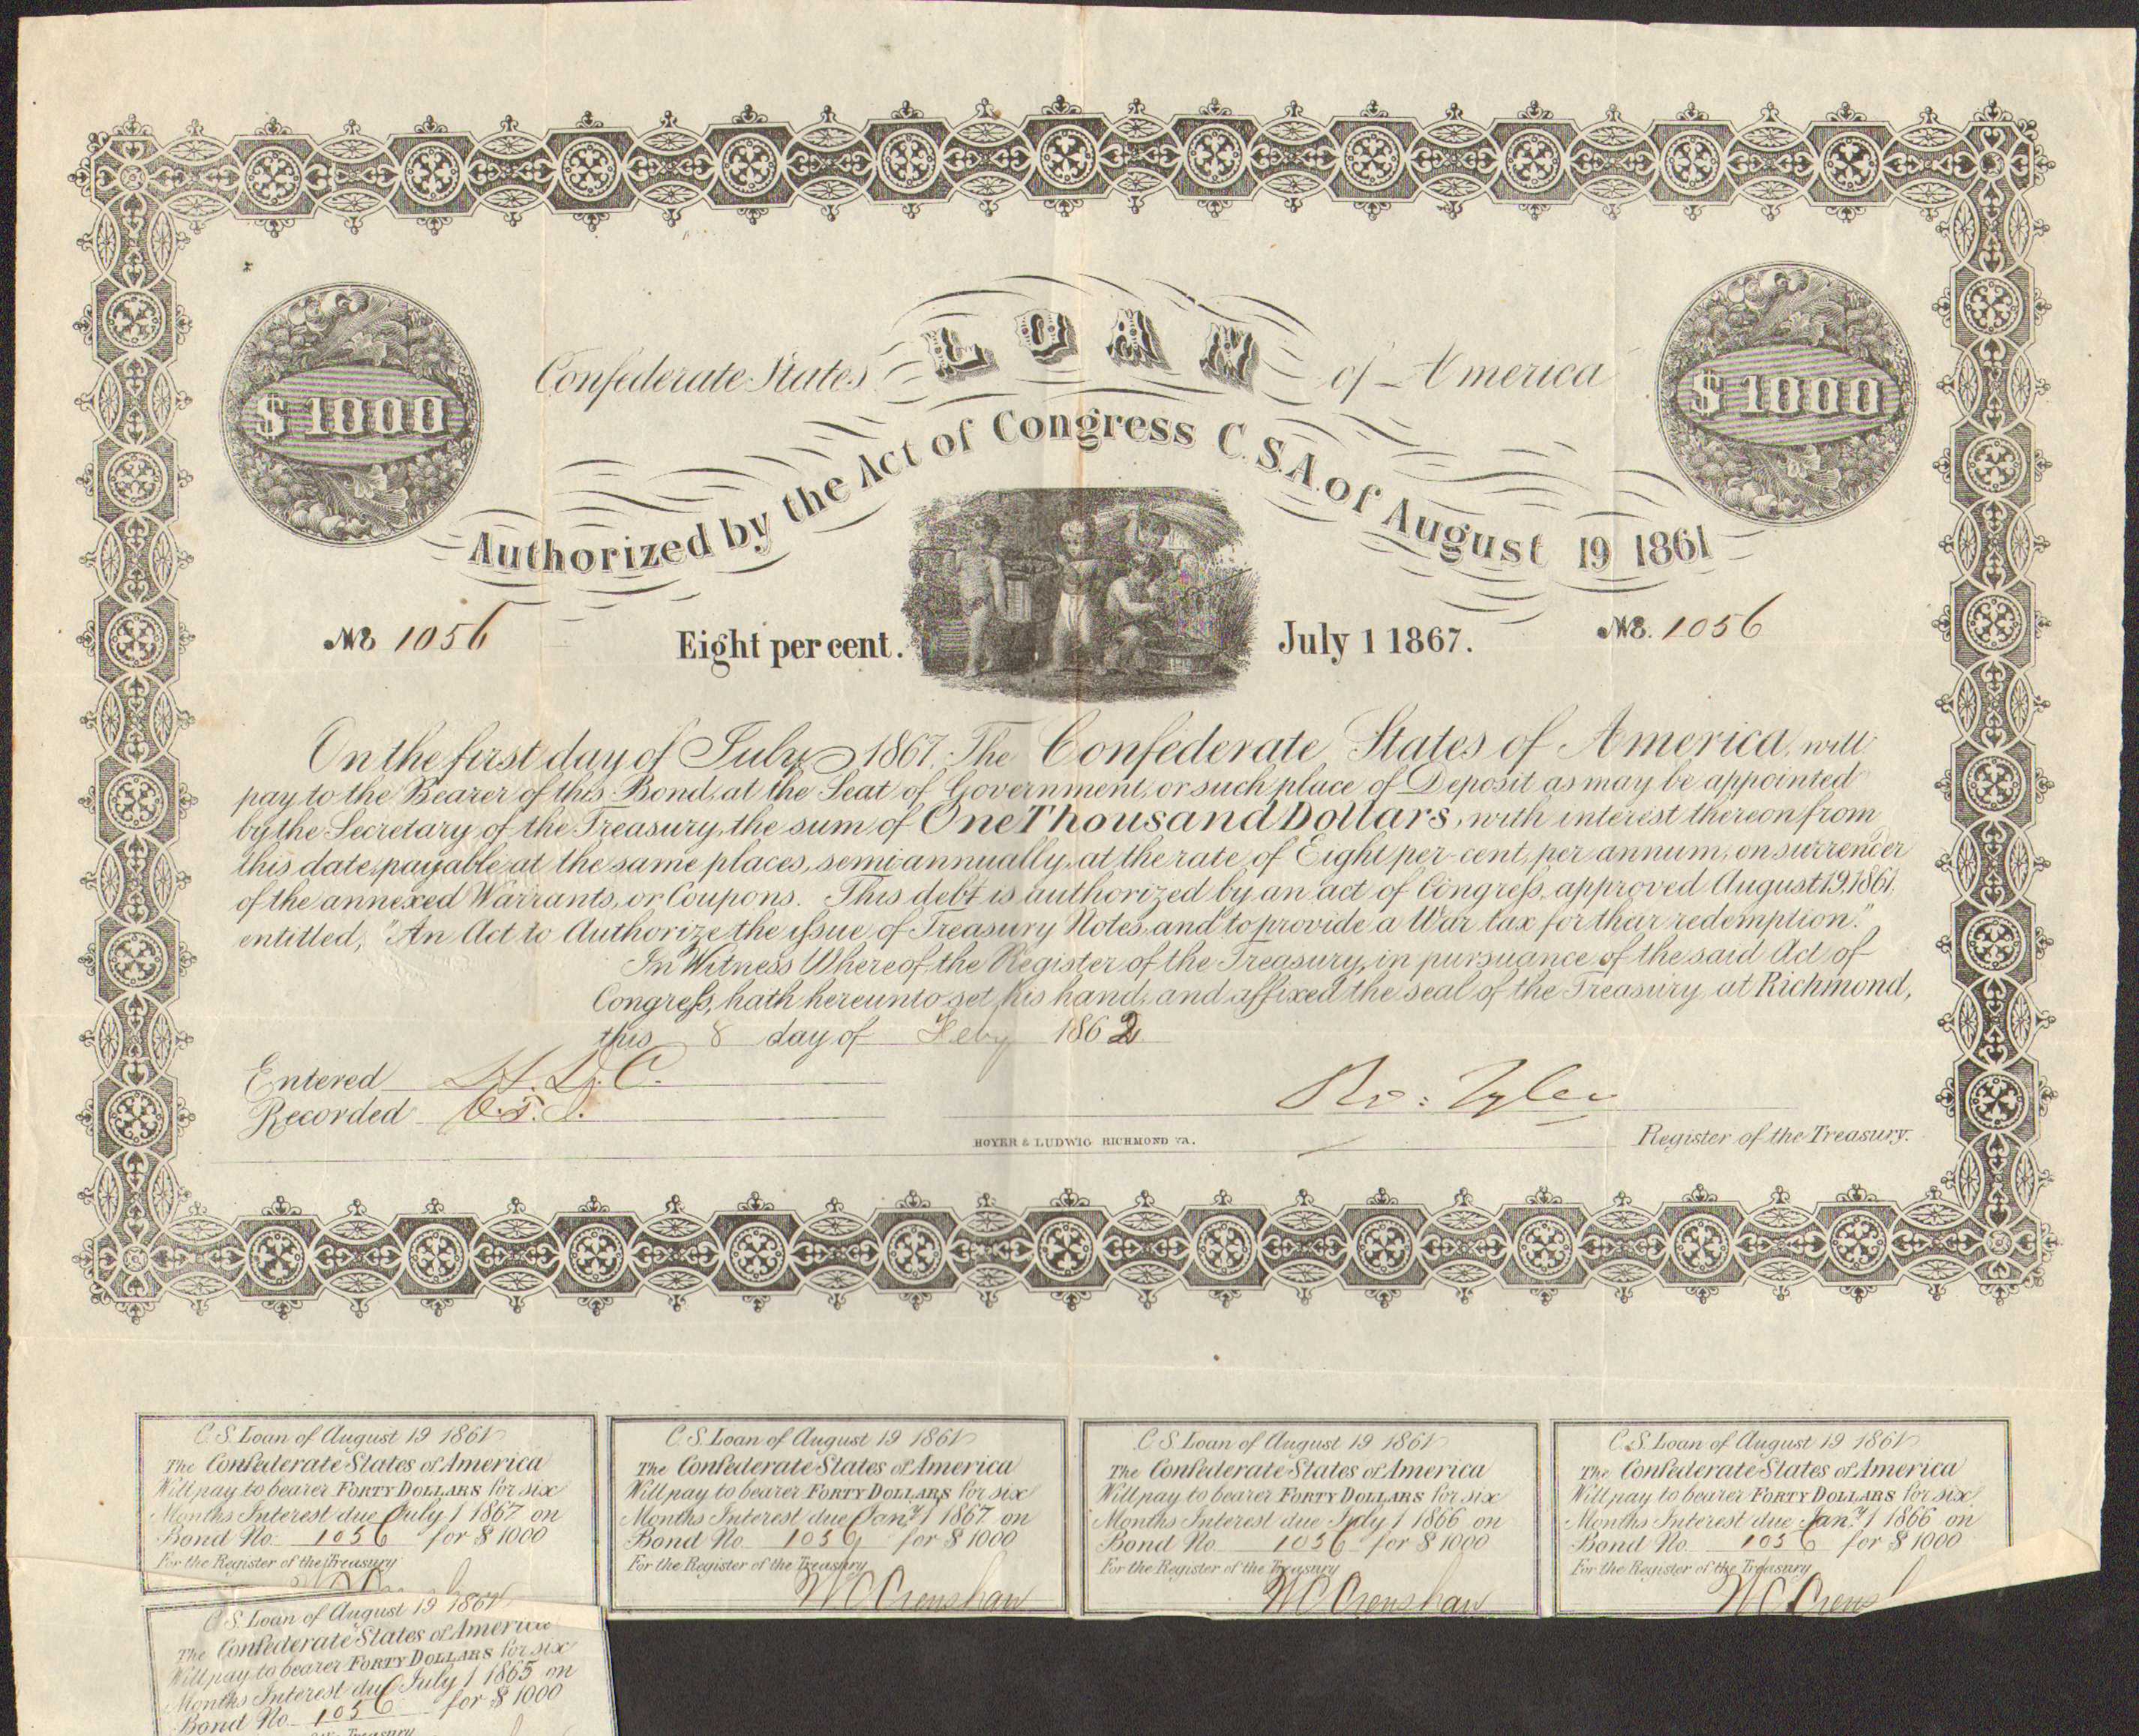 Confederate States LOAN of America
$1000
$1000
Authorized by the Act of Congress C.S.A. of August 19 1861
No 1056
Eight per cent.
July 1 1867.
No. 1056
On the first day of July 1867, The Confederate States of America, will
pay to the Bearer of this Bond, at the Seat of Government, or such place of Deposit as may be appointed
by the Secretary of the Treasury, the sum of One Thousand Dollars, with interest thereon from
this date, payable at the same places, semi annually, at the rate of Eight per-cent, per annum, on surrender
of the annexed Warrants, or Coupons. This debt is authorized by an act of Congress, approved August 19, 1861,
entitled, "An Act to Authorize the issue of Treasury Notes, and to provide a War tax for thair redemption."
In Witness Whereof, the Register of the Treasury, in pursuance of the said Act of
Congress, hath hereunto set his hand, and affixed the seal of the Treasury, at Richmond,
this 8 day of Feby 1862
Entered H.L.C.
Recorded
Ro: Tyler
HOYER & LUDWIG RICHMOND VA.
Register of the Treasury.
C.S. Loan of August 19 1861
The Confederate States of America
Will pay to bearer FORTY DOLLARS for six
Months Interest due July 1 1867 on
Bond No 1056 for $1000
For the Register of the Treasury
C.S. Loan of August 19 1861
The Confederate States of America
Will pay to bearer FORTY DOLLARS for six
Months Interest due Jany 1 1867 on
Bond No 1056 for $1000
For the Register of the Treasury
W C Crenshaw
C.S. Loan of August 19 1861
The Confederate States of America
Will pay to bearer FORTY DOLLARS for six
Months Interest due July 1 1866 on
Bond No 1056 for $1000
For the Register of the Treasury
W C Crenshaw
C.S. Loan of August 19 1861
The Confederate States of America
Will pay to bearer FORTY DOLLARS for six
Months Interest due Jany 1 1866 on
Bond No. 1056 for $1000
For the Register of the Treasury
W C Crens
C.S. Loan of August 19 1861
The Confederate States of America
Will pay to bearer FORTY DOLLARS for six
Months Interest due July 1 1865 on
Bond No 1056 for $1000
Treasury